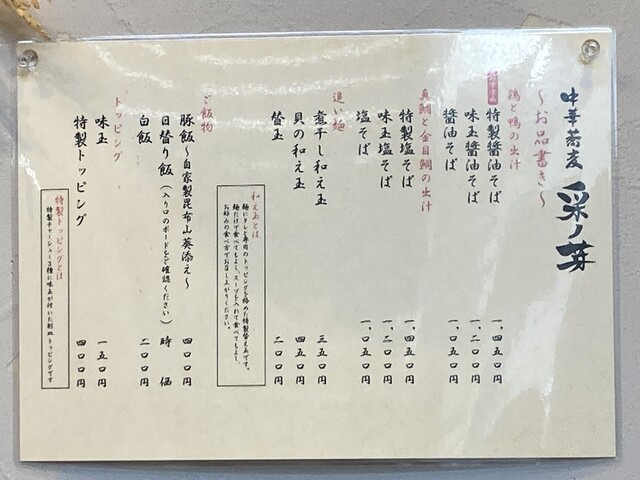 中華蕎麦 采ノ芽
～お品書き～
鶏と鴨の出汁
特製醤油そば 一、四五〇円
味玉醤油そば 一、二〇〇円
醤油そば 一、〇五〇円
真鯛と金目鯛の出汁
特製塩そば 一、四五〇円
味玉塩そば 一、二〇〇円
塩そば 一、〇五〇円
追い麺
煮干し和え玉 三五〇円
貝の和え玉 四五〇円
替玉 二〇〇円
和え玉とは
麺にタレと専用のトッピングを絡めた特製替え玉です。
麺だけで食べてもよし、スープを入れて食べてもよし、
お好みの食べ方でお召し上がりください。
ご飯物
豚飯～自家製昆布山葵添え～ 四〇〇円
日替り飯(入り口のボードをご確認ください) 時価
白飯 二〇〇円
トッピング
味玉 一五〇円
特製トッピング 四〇〇円
特製トッピングとは
特製チャーシュー3種に味玉が付いた別皿トッピングです